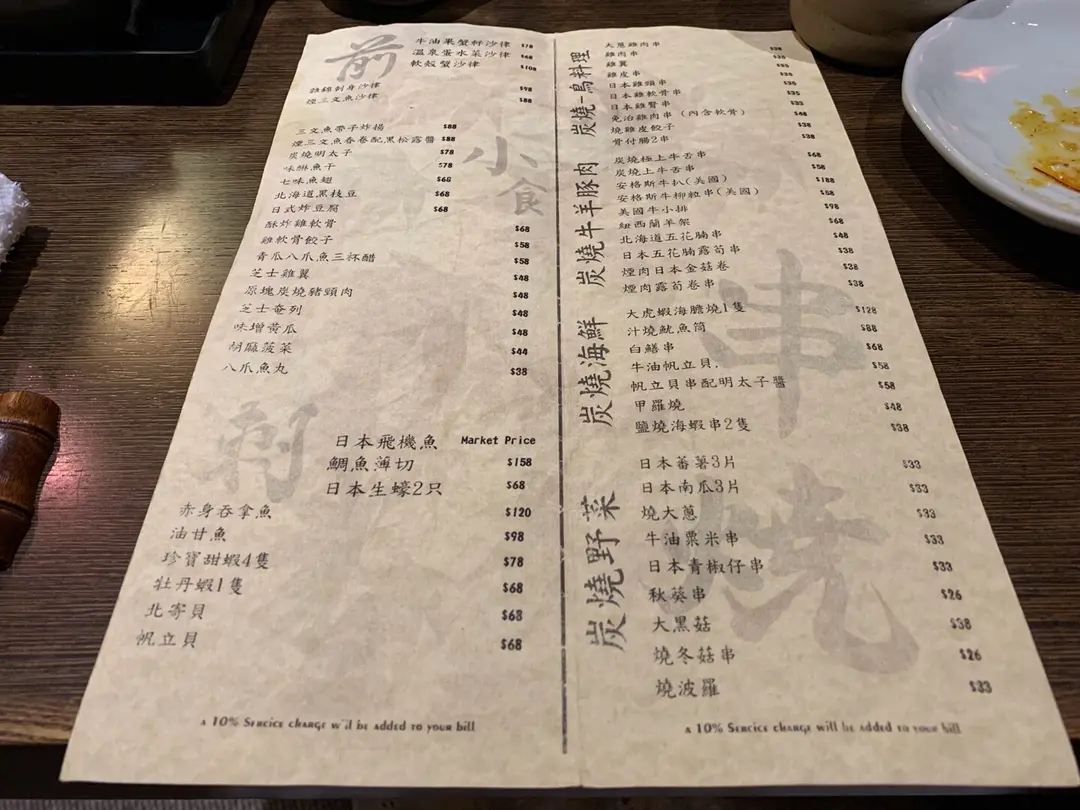 前
牛油果蟹籽沙律 $78
溫泉蛋水菜沙律 $68
軟殼蟹沙律 $108
雜錦刺身沙律 $98
煙三文魚沙律 $88
小食
三文魚帶子炸揚 $88
煙三文魚春卷配黑松露醬 $88
炭燒明太子 $78
味醂魚干 $78
七味魚翅 $68
北海道黑枝豆 $68
日式炸豆腐 $68
酥炸雞軟骨 $68
雞軟骨餃子 $58
青瓜八爪魚三杯醋 $58
芝士雞翼 $48
原塊炭燒豬頸肉 $48
芝士奄列 $48
味增黃瓜 $48
胡麻菠菜 $44
八爪魚丸 $38
刺
日本飛機魚 Market Price
鯛魚薄切 $158
日本生蠔2只 $68
赤身吞拿魚 $120
油甘魚 $98
珍寶甜蝦4隻 $78
牡丹蝦1隻 $68
北寄貝 $68
帆立貝 $68
A 10% Sercice charge will be added to your bill
串燒
炭燒-鳥料理
大蔥雞肉串 $38
雞肉串 $35
雞翼 $35
雞皮串 $35
日本雞頸串 $35
日本雞軟骨串 $35
日本雞腎串 $33
免治雞肉串 (內含軟骨) $48
燒雞皮餃子 $38
骨付腸2串 $38
炭燒牛羊豚肉
炭燒極上牛舌串 $68
炭燒上牛舌串 $58
安格斯牛扒(美國) $188
安格斯牛柳粒串(美國) $58
美國牛小排 $98
紐西蘭羊架 $68
北海道五花腩串 $48
日本五花腩露荀串 $38
煙肉日本金菇卷 $38
煙肉露荀卷串 $38
炭燒海鮮
大虎蝦海膽燒1隻 $128
汁燒魷魚筒 $88
白鱔串 $68
牛油帆立貝. $58
帆立貝串配明太子醬 $58
甲羅燒 $48
鹽燒海蝦串2隻 $38
炭燒野菜
日本蕃薯3片 $33
日本南瓜3片 $33
燒大蔥 $33
牛油粟米串 $33
日本青椒仔串 $33
秋葵串 $26
大黑菇 $38
燒冬菇串 $26
燒波羅 $33
A 10% Sercice charge will be added to your bill